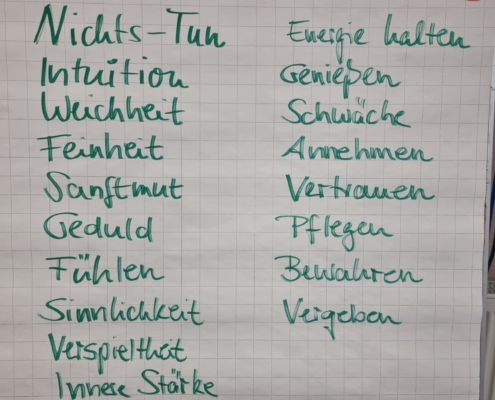 Nichts-Tun
Intuition
Weichheit
Feinheit
Sanftmut
Geduld
Fühlen
Sinnlichkeit
Verspieltheit
Innere Stärke
Energie halten
Genießen
Schwäche
Annehmen
Vertrauen
Pflegen
Bewahren
Vergeben